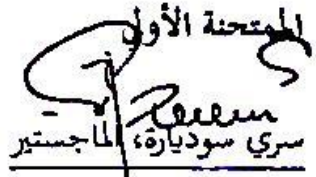 الممتحنة الأولى
سري سوديارة، الماجستير